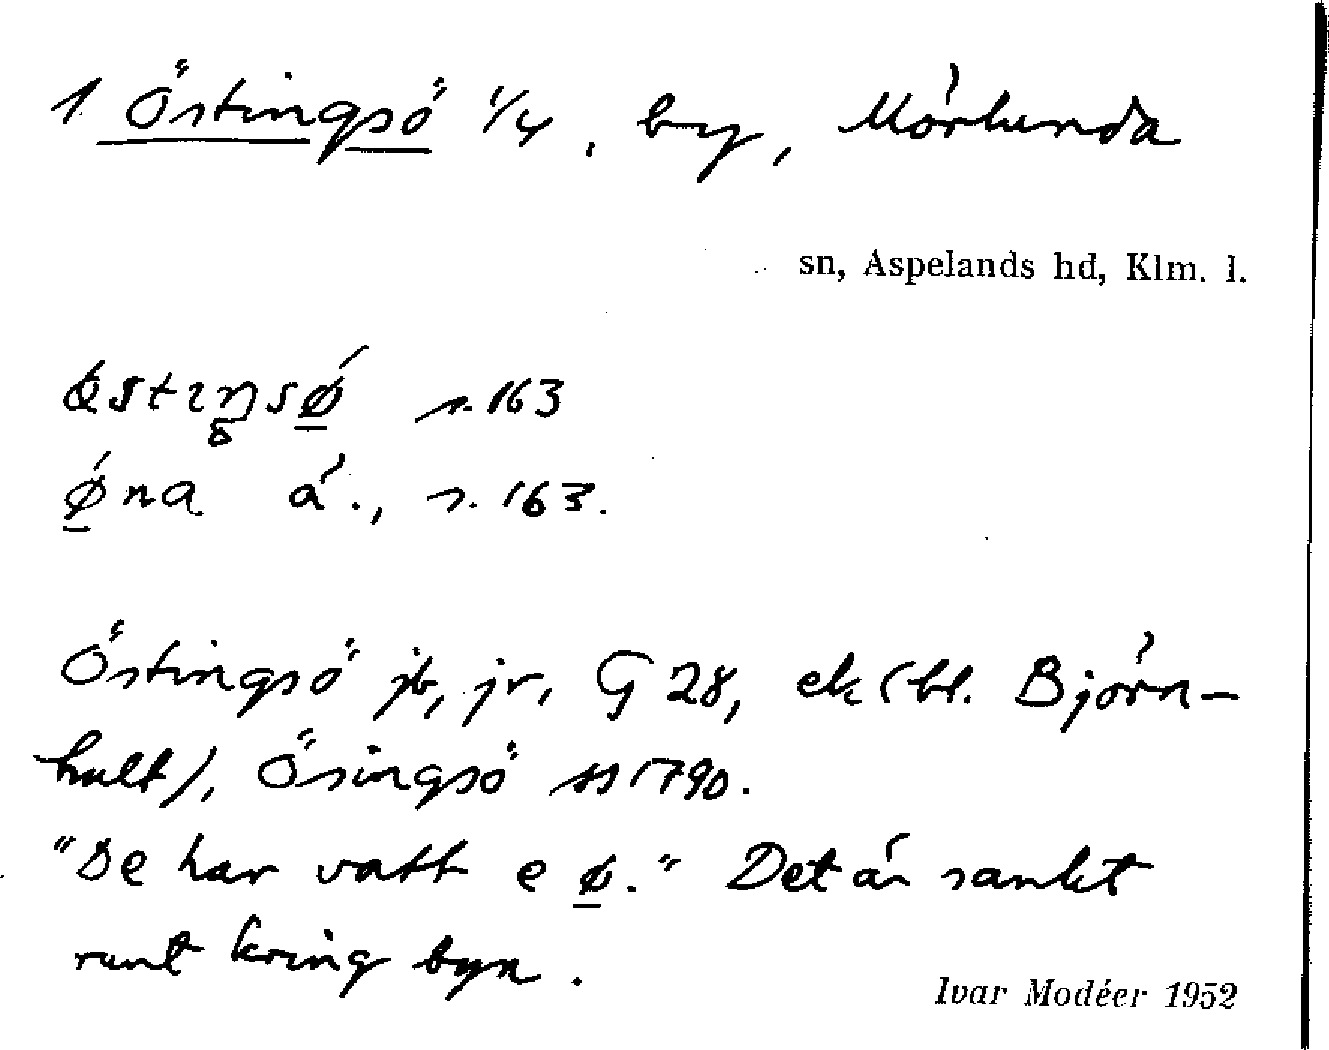 1 Östingsö 1/4, by, Mörlunda
sn, Aspelands hd, Klm. l.
s. 163
ǿna á., s. 163.
Östingsö jb, jr, G 28, ek (bl. Björn-
hult), Ösingsö ss 1790.
"De har vatt e ø." Det är sankt
runt kring byn.
Ivar Modéer 1952